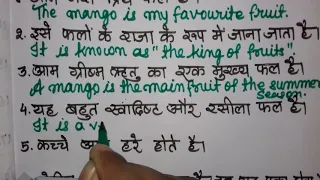 The mango is my favourite fruit.
2. इसे फलों के राजा के रूप में जाना जाता है।
It is known as "the king of fruits".
3. आम ग्रीष्म ऋतु का एक मुख्य फल है।
A mango is the main fruit of the summer
season.
4. यह बहुत स्वादिष्ट और रसीला फल है।
It is a v
5. कच्चे हरे होते है।